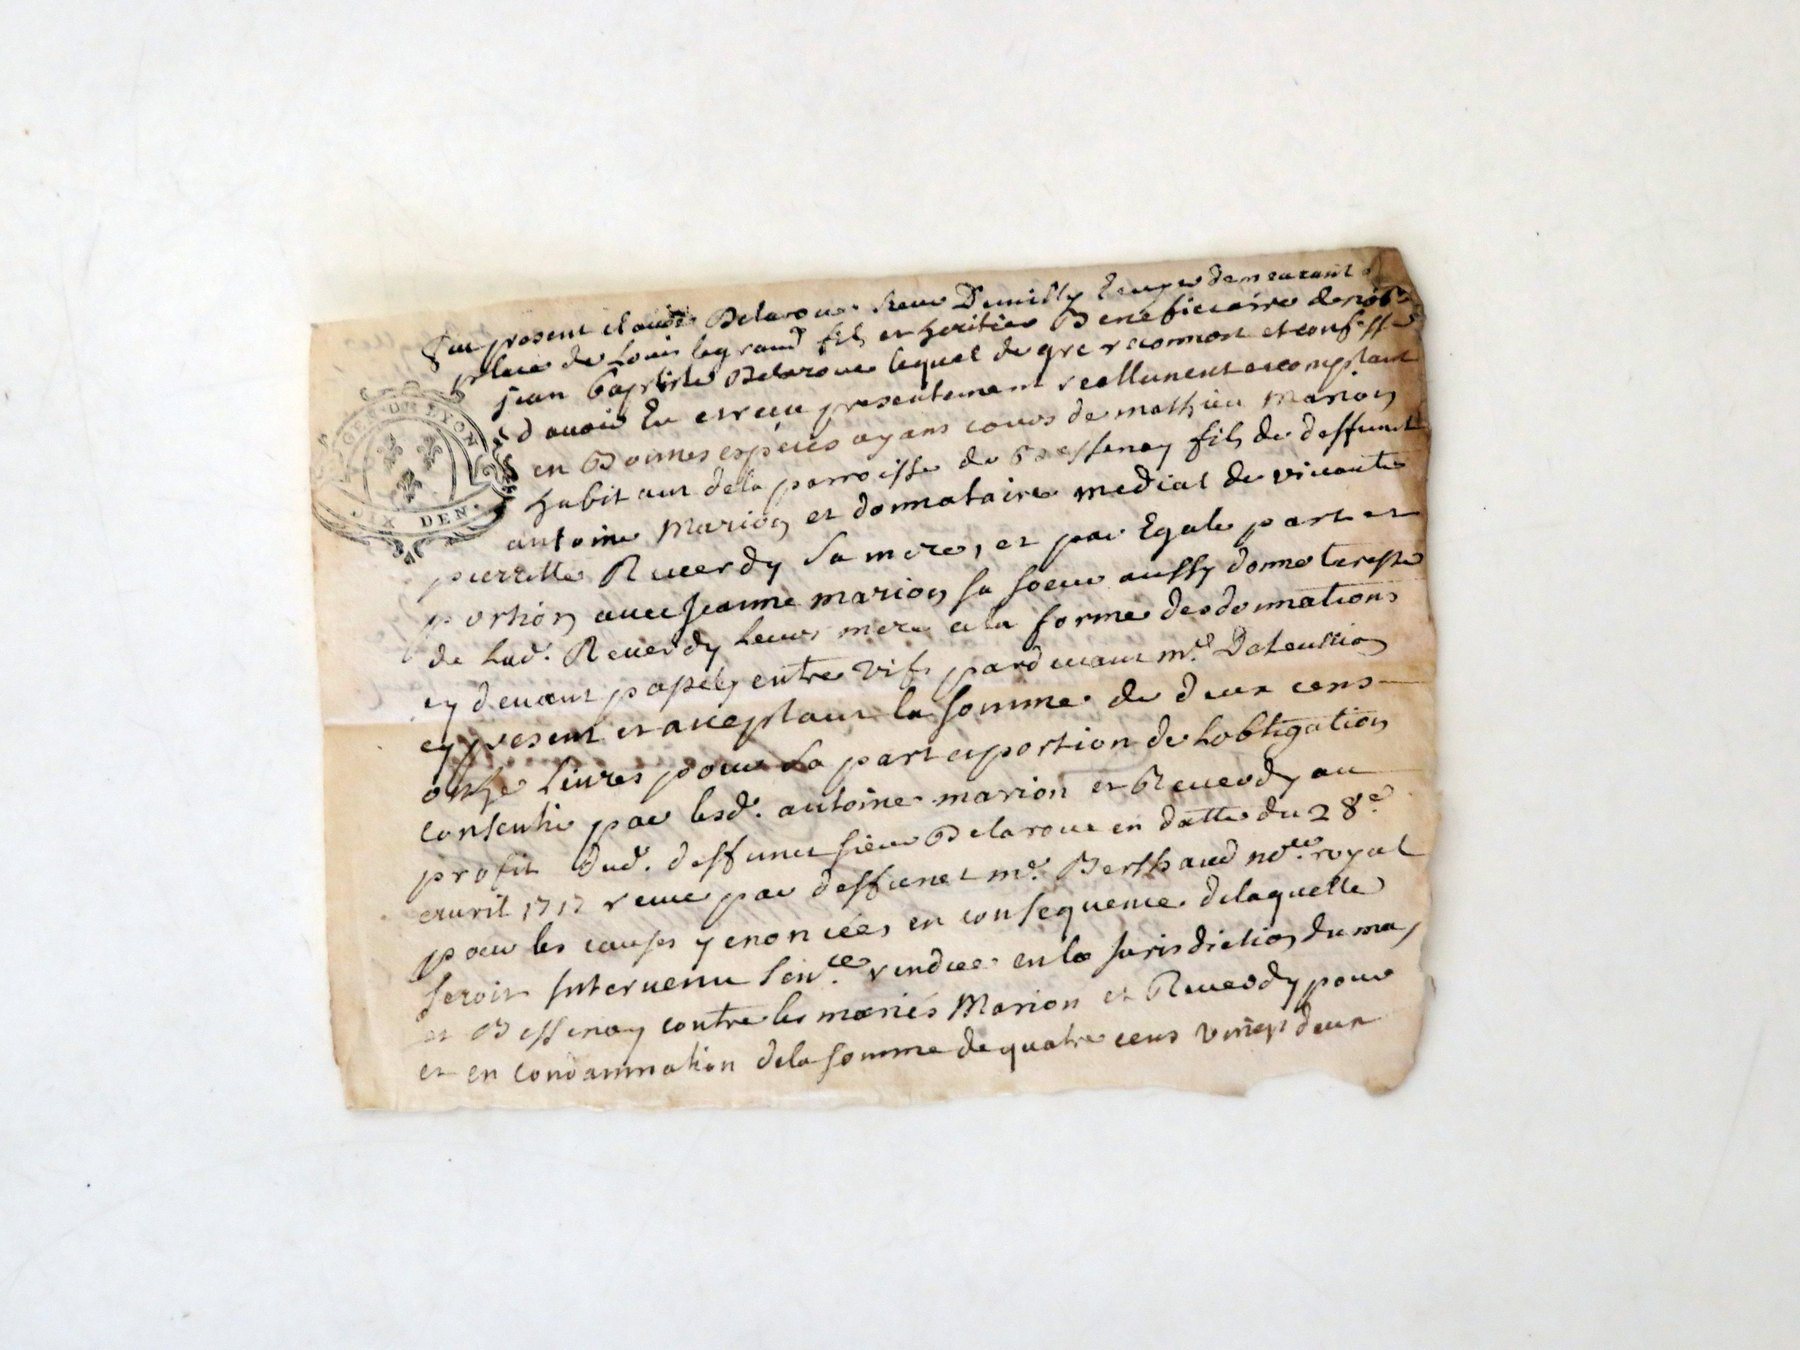 GEN. DE LYON
SIX DEN.
Fut present claude Delaroue sieur Demilly Ecuyer demeurant
place de Louis legrand fils et heritier Beneficiaire de noble
jean baptiste Delaroue lequel de gre reconnoit et confesse
d'avoir Eu et receu presentement reellement et comptant
en Bonnes especes ayans cours de mathieu Marion
habitant dela parroisse de Bessenay fils de deffunct
antoine Marion et donnataire medial de vivante
pierrette Reverdy sa mere, et par Egale part et
portion avec Jeanne marion sa soeur aussy donnataresse
de lad. Reverdy leur mere a la forme des donnations
cy devant entre vifs pardevant me.
cy present et acceptant la somme de deux cens
onze livres pour sa part et portion de Lobligation
consentie par lesd. antoine marion et Reverdy au
profit dud. deffunct sieur Delaroue en datte du 28e
avril 1717 receue par deffunct me. Berthaud nore. royal
pour les causes y enoncées en consequence delaquelle
seroit Intervenu Sence. rendue en la Jurisdiction du
et Bessenay contre les mariés Marion et Reverdy pour
et en condamnation dela somme de quatre cens vingt deux